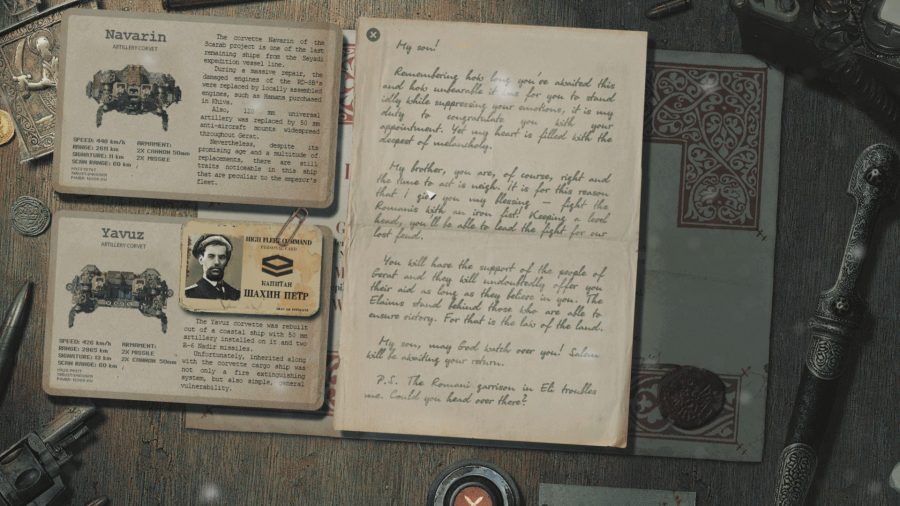 Navarin
ARTILLERY CORVET
SPEED: 440 km/h
RANGE: 2611 km
SIGNATURE: 11 km
SCAN RANGE: 60 km
ARMAMENT:
2X CANNON 50mm
2X MISSILE
The corvette Navarin of the
Scarab project is one of the last
remaining ships from the Sayadi
expedition vessel line.
During a massive repair, the
damaged engines of the
were replaced by locally assembled
engines, such as Hamams purchased
in Khiva.
Also, universal
artillery was replaced by 50 mm
anti-aircraft mounts widespread
throughout Gerat.
Nevertheless, despite its
promising age and a multitude of
replacements, there are still
traits noticeable in this ship
that are peculiar to the emperor's
fleet.
Yavuz
ARTILLERY CORVET
SPEED: 426 km/h
RANGE: 2865 km
SIGNATURE: 12 km
SCAN RANGE: 60 km
ARMAMENT:
2X MISSILE
2X CANNON 50mm
HIGH FLEET COMMAND
PERSONAL CARD
КАПИТАН
ШАХИН ПЕТР
The Yavuz corvette was rebuilt
out of a coastal ship with 50 mm
artillery installed on it and two
R-6 Nadir missiles.
Unfortunately, inherited along
with the corvette cargo ship was
not only a fire extinguishing
system, but also simple, general
vulnerability.
My son!
Remembering how long you've awaited this
and how unbearable it was for you to stand
idly while suppressing your emotions, it is my
duty to congratulate you with your
appointment. Yet my heart is filled with the
deepest of melancholy.
My brother, you are, of course, right and
the time to act is neigh. It is for this reason
that I give you my blessing – fight the
Romanis with an iron fist! Keeping a level
head, you'll be able to lead the fight for our
lost feud.
You will have the support of the people of
Gerat and they will undoubtedly offer you
their aid as long as they believe in you. The
Elaims stand behind those who are able to
ensure victory. For that is the law of the land.
My son, may God watch over you! Salem
will be awaiting your return.
P.S. The Romani garrison in Eli troubles
me. Could you head over there?